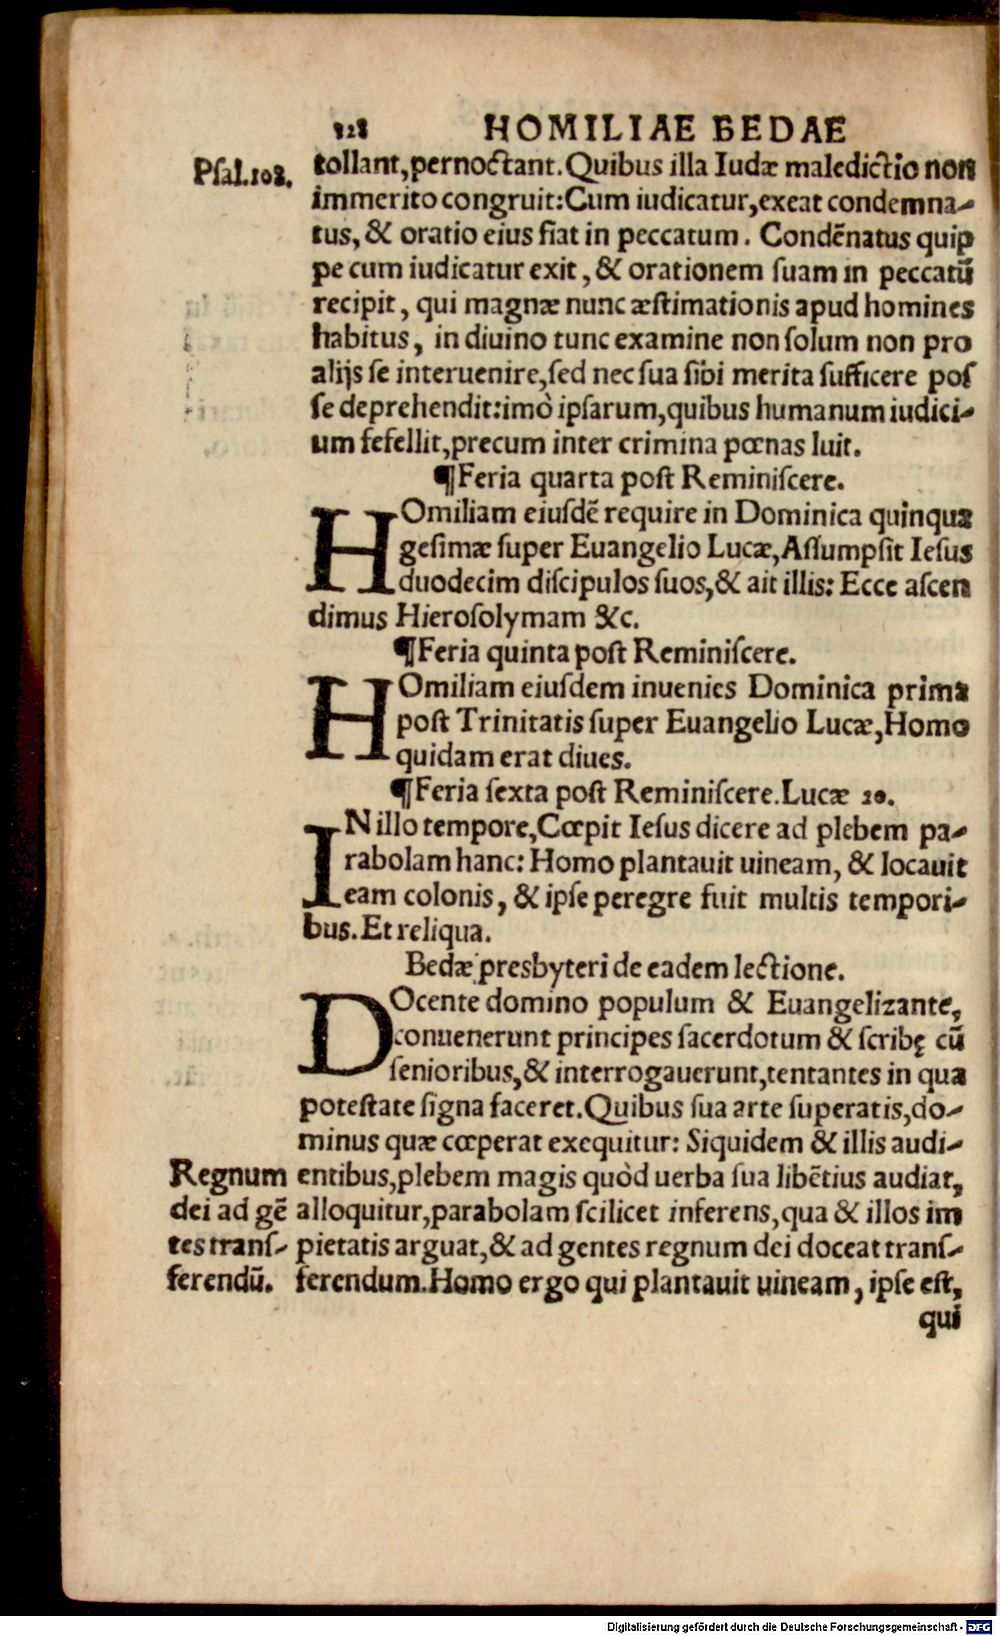 328 HOMILIAE BEDAE
Psal.108. tollant,pernoctant.Quibus illa Iudæ maledictio non
immerito congruit:Cum iudicatur,exeat condemna-
tus, & oratio eius fiat in peccatum. Condẽnatus quip
pe cum iudicatur exit, & orationem suam in peccatũ
recipit, qui magnæ nunc æstimationis apud homines
habitus, in diuino tunc examine non solum non pro
alijs se interuenire,sed nec sua sibi merita sufficere pos
se deprehendit:imò ipsarum,quibus humanum iudici-
um fefellit,precum inter crimina pœnas luit.
¶Feria quarta post Reminiscere.
HOmiliam eiusdẽ require in Dominica quinqua
gesimæ super Euangelio Lucæ,Assumpsit Iesus
duodecim discipulos suos,& ait illis: Ecce ascen
dimus Hierosolymam &c.
¶Feria quinta post Reminiscere.
HOmiliam eiusdem inuenies Dominica prima
post Trinitatis super Euangelio Lucæ,Homo
quidam erat diues.
¶Feria sexta post Reminiscere.Lucæ 20.
IN illo tempore,Cœpit Iesus dicere ad plebem pa-
rabolam hanc: Homo plantauit uineam, & locauit
eam colonis, & ipse peregre fuit multis tempori-
bus.Et reliqua.
Bedæ presbyteri de eadem lectione.
DOcente domino populum & Euangelizante,
conuenerunt principes sacerdotum & scribę cũ
senioribus,& interrogauerunt,tentantes in qua
potestate signa faceret.Quibus sua arte superatis,do-
minus quæ cœperat exequitur: Siquidem & illis audi-
Regnum entibus,plebem magis quòd uerba sua libẽtius audiat,
dei ad gẽ alloquitur,parabolam scilicet inferens,qua & illos im
tes trans- pietatis arguat,& ad gentes regnum dei doceat trans-
ferendũ. ferendum.Homo ergo qui plantauit uineam, ipse est,
qui
Digitalisierung gefördert durch die Deutsche Forschungsgemeinschaft - DFG